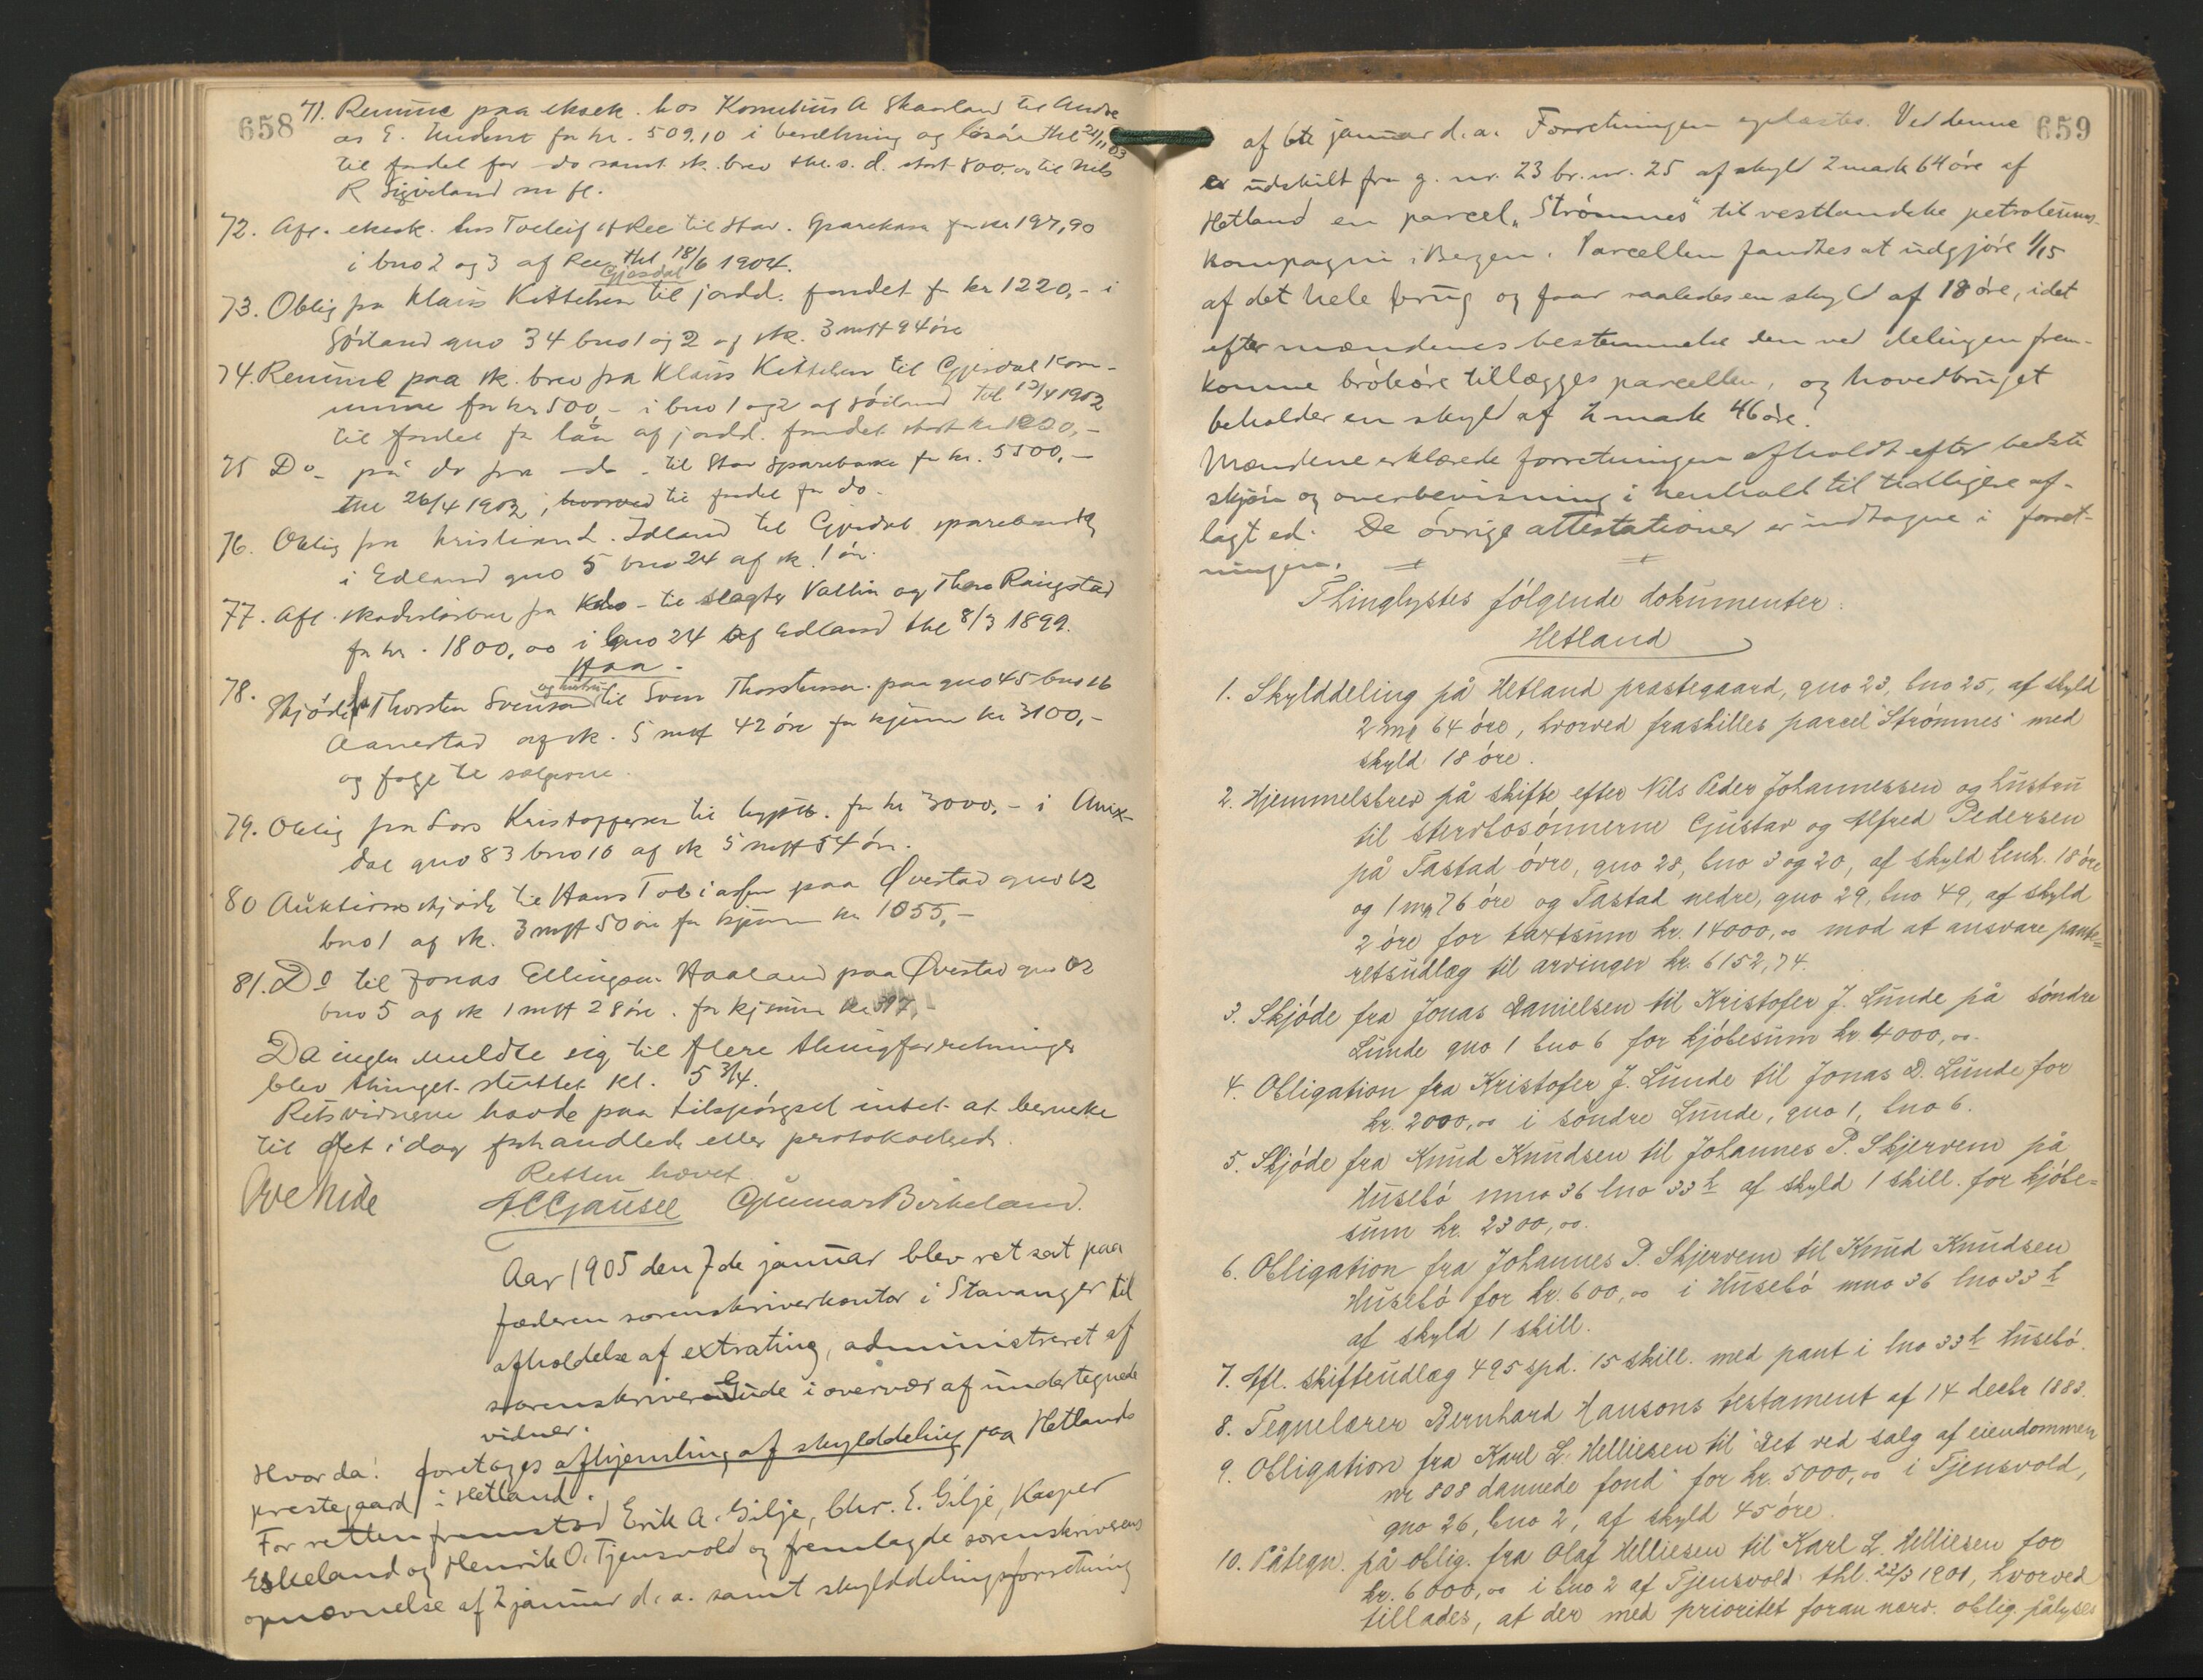 658
71. Renunc paa eksek. hos Kornelius A Skaarland til Andre
as E. for kr. 509.10 i besætning og løsøre thl 21/11 03
til fordel for do samt sk. brev thl. s. d. stort 800.00 til Nils
R Sigveland m fl.
72. Afl. eksek. hos Torleif Ree til Stav. Sparekasse for kr 197,90
i bno 2 og 3 af Ree thl 18/6 1904.
Gjesdal
73. Oblig fra Klaus Kittelsen til jordd. fondet for kr 1220,- i
Søiland gno 34 bno 1 og 2 af sk. 3 mrk 94 øre
74. Renunc paa sk. brev fra Klaus Kittelsen til Gjesdal Kom-
mune for kr 500,- i bno 1 og 2 af Søiland thl 1902
til fordel for lån af jordd. fondet stort kr 1220,-
75 Do - på do fra - do - til Stav Sparekasse for kr. 5500,-
thl 26/4 1902, hvorved til fordel for do.
76. Oblig fra Kristian L. Idland til Gjesdal sparebank
i Edland gno 5 bno 24 af sk. 1 øre.
77. Afl. skadesløsbrev fra Kdo - til slagter Vallin og Thora Ringstad
for kr. 1800,00 i bno 24 af Edland thl 8/3 1899.
Haa -
78. Skjøde fra Thorsten Svensen og hustru til Sven Thorstensen paa gno 45 bno 16
Aanestad af sk. 5 mrk 42 øre for kjøsum kr 3100,-
og følge til sælgerne.
79. Oblig fra Lars Kristoffersen til hypb. for kr 3000,- i Aux-
dal gno 83 bno 10 af sk 5 mrk 54 øre.
80 Auktionsskjøde til Hans Tobiassen paa Øvestad gno 62
bno 1 af sk. 3 mrk 50 øre for kjøsum kr 1055,-
81. Do til Jonas Ellingsen Haaland paa Øvestad gno 62
bno 5 af sk 1 mrk 28 øre. for kjøsum kr 397,-
Da ingen meldte sig til flere thingforretninger
blev thinget sluttet kl. 5 3/4.
Retsvidnerne havde paa tilspørgsel intet at bemerke
til det i dag forhandlede eller protokollerede.
Retten hævet
Ove Gude A.C. Gausel Gunnar Birkeland.
Aar 1905 den 7de januar blev ret sat paa
Jæderen sorenskriverkontor i Stavanger til
afholdelse af extrating, administreret af
sorenskriveren Gude i overvær af undertegnede
vidner.
Hvor da: foretoges afhjemling af skylddeling paa Hetlands
prestegaard i Hetland.
For retten fremstod Erik A. Gilje, Chr. E. Gilje, Kasper
Eskeland og Henrik O. Tjensvold og fremlagde sorenskriverens
opnævnelse af 2 januar d. a. samt skylddelingsforretning
659
af 6te januar d. a. Forretningen oplæstes. Ved denne
er udskilt fra g. nr. 23 br. nr. 25 af skyld 2 mark 64 øre af
Hetland en parcel "Strømnes" til vestlandske petroleums-
kompagni i Bergen. Parcellen fandtes at udgjøre 1/15
af det hele brug og faar saaledes en skyld af 18 øre, idet
efter mændenes bestemmelse den ved delingen frem-
komne brøkøre tillægges parcellen, og hovedbruget
beholder en skyld af 2 mark 46 øre.
Mændene erklærede forretningen afholdt efter bedste
skjøn og overbevisning i henhold til tidligere af-
lagt ed. De øvrige attestationer er indtagne i forret-
ningen.
Thinglystes følgende dokumenter:
Hetland
1. Skylddeling på Hetland præstegaard, gno 23, bno 25, af skyld
2 mrk 64 øre, hvorved fraskilles parcel "Strømnes" med
skyld 18 øre.
2. Hjemmelsbrev på skifte efter Nils Peder Johannessen og hustru
til sterbosønnerne Gustav og Alfred Pedersen
på Tastad øvre, gno 28, bno 3 og 20, af skyld henh. 18 øre
og 1 mrk 76 øre og Tastad nedre, gno 29, bno 49, af skyld
2 øre for taxtsum kr. 14000,00 mod at ansvare pante=
retsudlæg til arvinger kr. 6152,74.
3. Skjøde fra Jonas Danielsen til Kristofer J. Lunde på søndre
Lunde gno 1 bno 6 for kjøbesum kr. 4000,00.
4. Obligation fra Kristofer J. Lunde til Jonas D. Lunde for
kr. 2000,00 i søndre Lunde, gno 1, bno 6.
5. Skjøde fra Knud Knudsen til Johannes P. Skjervem på
Husebø mno 36 lno 33 h af skyld 1 skill. for kjøbe=
sum kr. 2300,00.
6. Obligation fra Johannes P. Skjervem til Knud Knudsen
Husebø for kr. 600,00 i Husebø mno 36 lno 33 h
af skyld 1 skill.
7. Afl. skifteudlæg 495 spd. 15 skill. med pant i lno 33 h Husebø.
8. Tegnelærer Bernhard Hansons testament af 14 decbr 1883.
9. Obligation fra Karl L. Helliesen til "Det ved salg af eiendommen
nr 808 dannede fond" for kr. 5000,00 i Tjensvold,
gno 26, bno 2, af skyld 45 øre.
10. Påtegn. på oblig. fra Olaf Helliesen til Karl L. Helliesen for
kr. 6000,00 i bno 2 af Tjensvold thl. 22/3 1901, hvorved
tillades, at der med prioritet foran nærv. oblig. pålyses